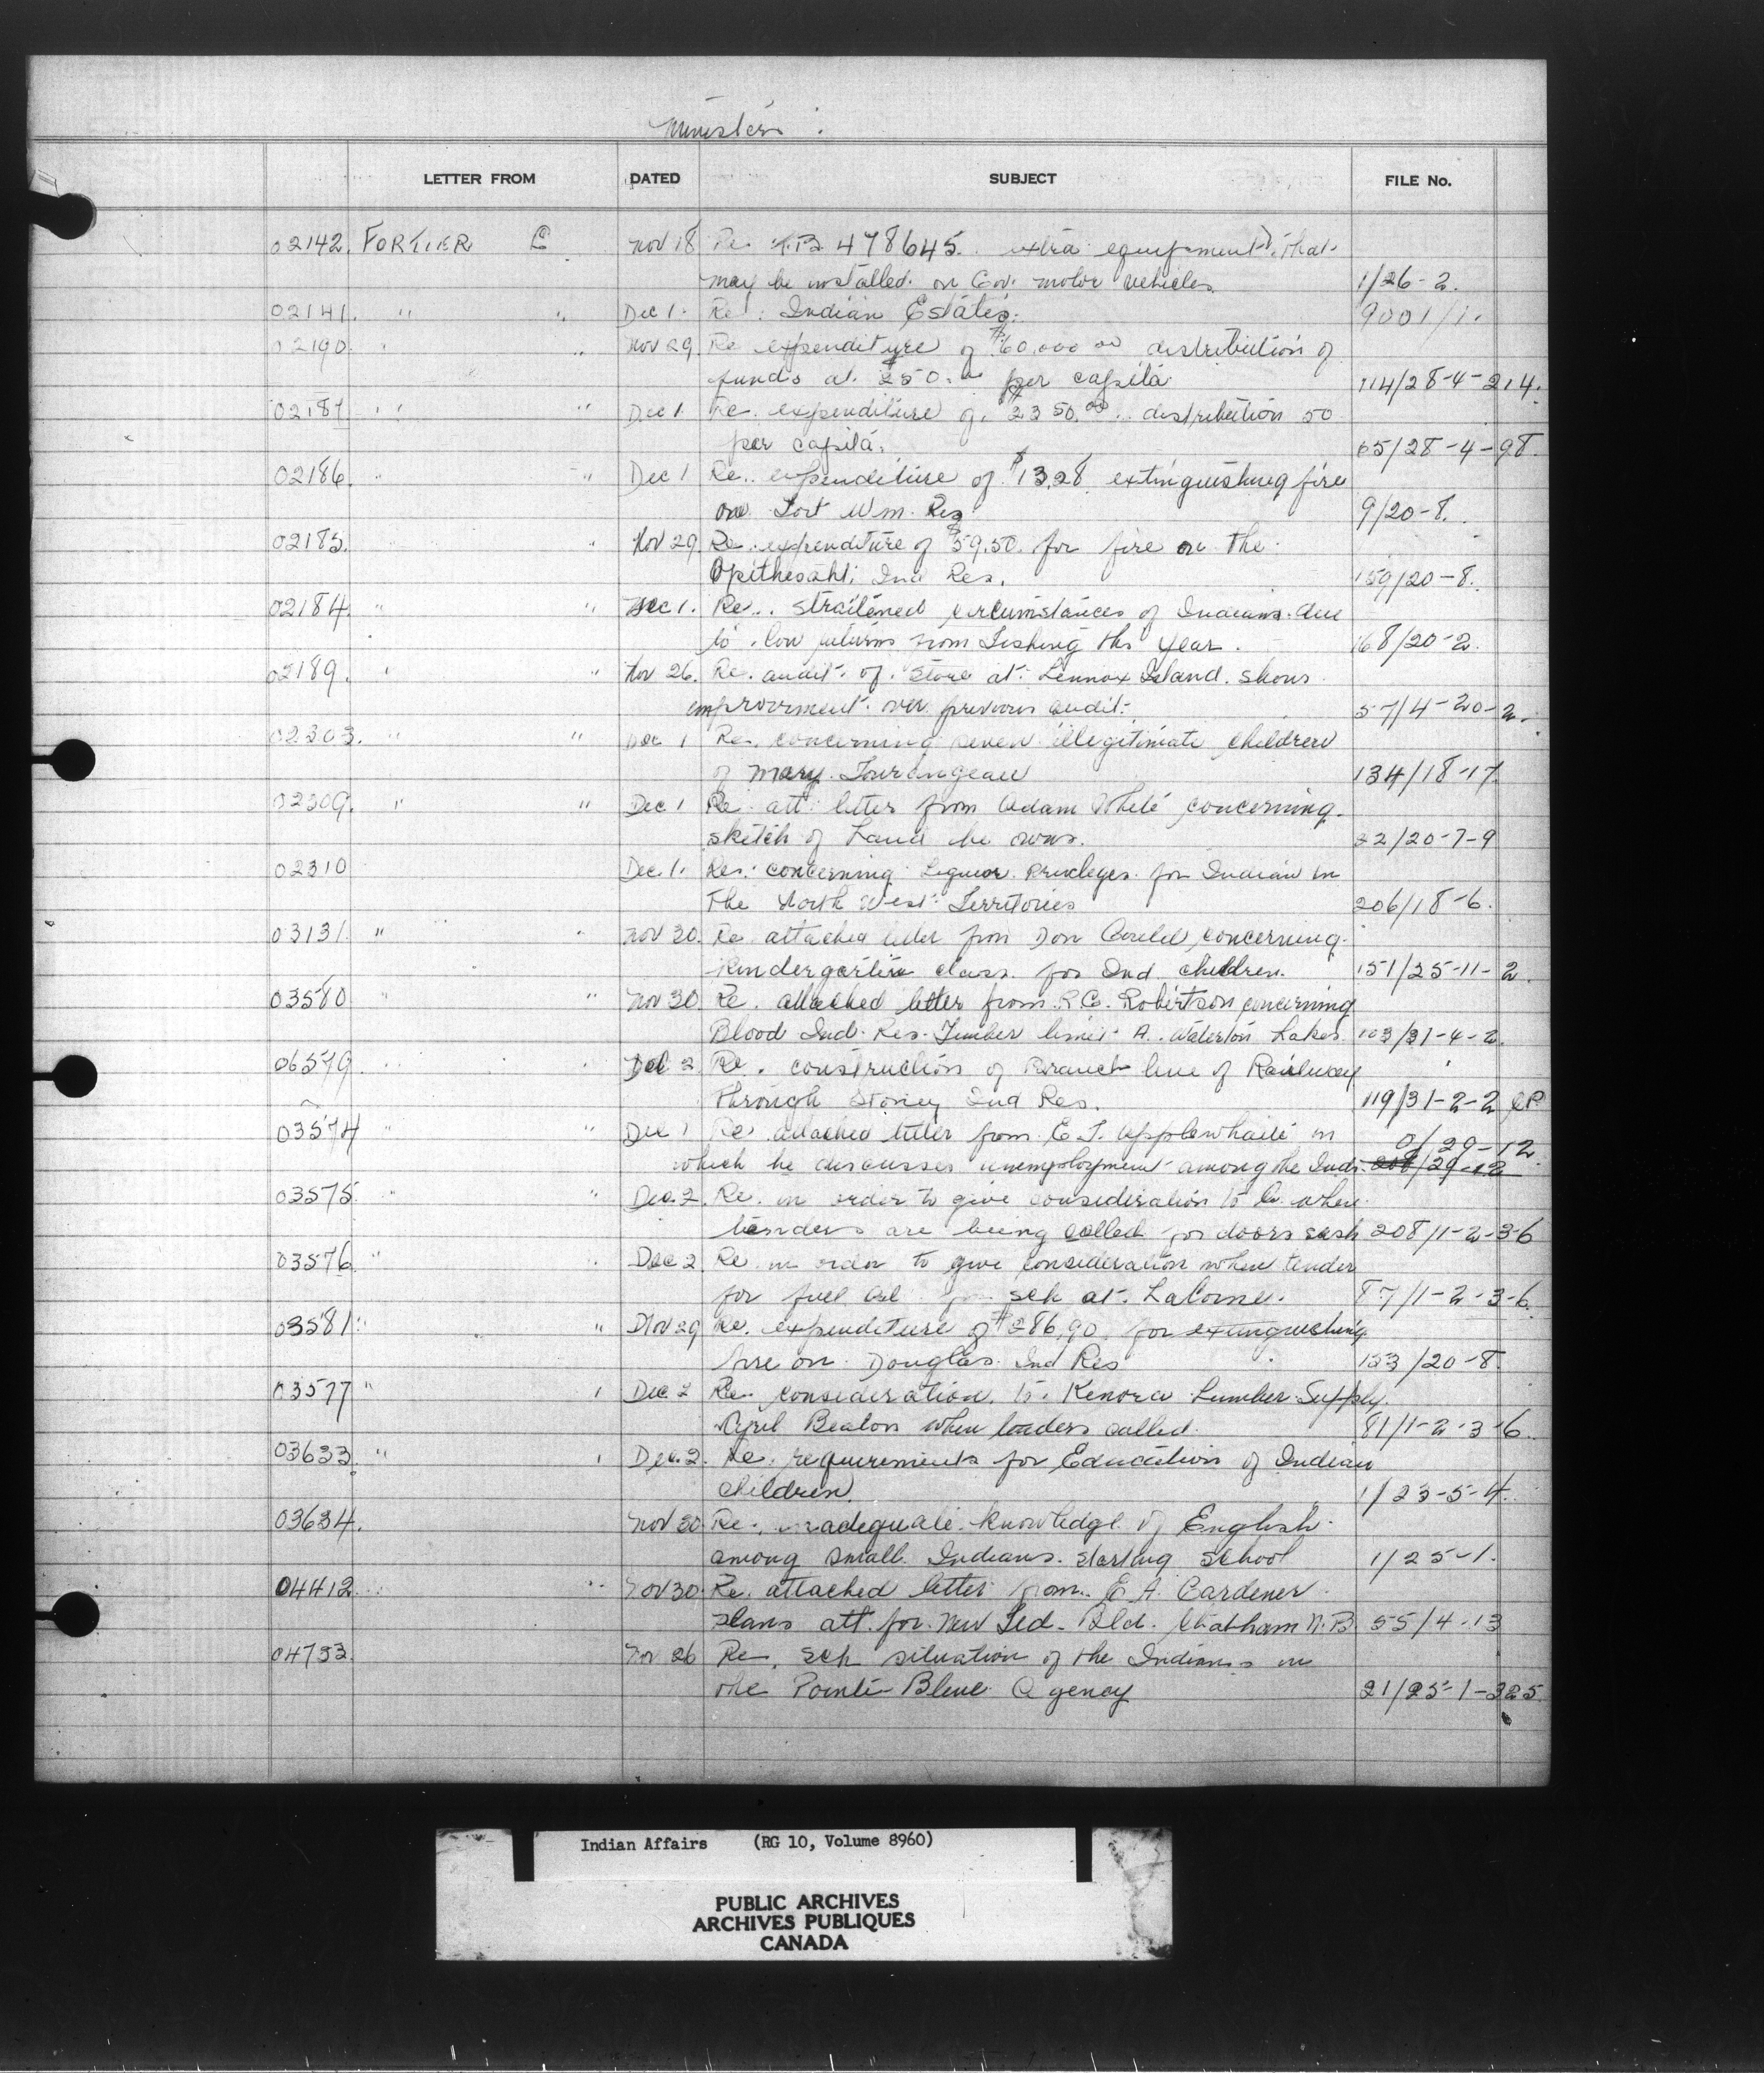 Minister's
LETTER FROM DATED SUBJECT FILE No.
02142. FORTIER E Nov 18 Re. T.B. 478645. extra equipment that
may be installed on Gov. motor vehicles 1/26-2.
02141. " " Dec 1. Re: Indian Estates. 9001/1.
02190. " " Nov 29. Re expenditure of $60,000.00 distribution of
funds at $50.00 per capita 114/28-4-214.
02187 " " Dec 1. Re. expenditure of $2350.00 distribution 50
per capita. 65/28-4-98.
02186. " " Dec 1 Re. expenditure of $13.28 extinguishing fire
on Fort Wm. Res 9/20-8.
02185. " " Nov 29. Re. expenditure of $59.50. for fire on the
Opithesaht Ind Res. 159/20-8.
02184 " " Dec 1. Re. straitened circumstances of Indians due
to low returns from Fishing this year. 168/20-2.
02189. " " Nov 26. Re. audit of Store at Lennox Island. shows
improvement over previous audit. 57/4-20-2.
02303. " " Dec 1 Re. concerning seven illegitimate children
of Mary Tourangeau 134/18-17
02309. " " Dec 1 Re att letter from Adam White concerning
sketch of Land he owns. 22/20-7-9
02310 Dec 1. Re. concerning Liquor privileges for Indian in
the North West Territories 206/18-6.
03131 " " Nov 30. Re attached letter from Don concerning
Kindergarten class for Ind children. 151/25-11-2.
03580 " " Nov 30 Re. attached letter from R.C. Robertson concerning
Blood Ind. Res. Timber limit A. Waterton Lakes 103/31-4-2.
06579 " " Dec 2. Re. construction of Branch line of Railway
through Stoney Ind Res. 119/31-2-2 CP
03574 " " Dec 1 Re. attached letter from E T. Applewhaite in 0/29-12.
which he discusses unemployment among the Inds. 208/29-12
03575 " " Dec. 2. Re. in order to give consideration to Co. when
tenders are being called for doors sash 208/1-2-3-6
03576 " " Dec 2. Re in order to give consideration when tender
for fuel oil for sch at. LaCorne. 87/1-2-3-6.
03581 " " Nov 29 Re. expenditure of $286.90. for extinguishing
fire on Douglas Ind Res 153/20-8.
03577 " " Dec 2 Re. consideration to Kenora Lumber Supply.
Cyril Beaton when tenders called. 81/1-2-3-6.
03633 " " Dec. 2. Re. requirements for Education of Indian
children. 1/23-5-4.
03634. Nov 30 Re. inadequate knowledge of English
among small Indians starting school 1/25-1.
04412 " " Nov 30. Re. attached letter from E. A. Gardener
plans att. for new Fed. Bld. Chatham N.B. 55/4-13
04733. Nov 26 Re. Sch situation of the Indians in
the Pointe Bleue Agency 21/25-1-325.
Indian Affairs (RG 10, Volume 8960)
PUBLIC ARCHIVES
ARCHIVES PUBLIQUES
CANADA